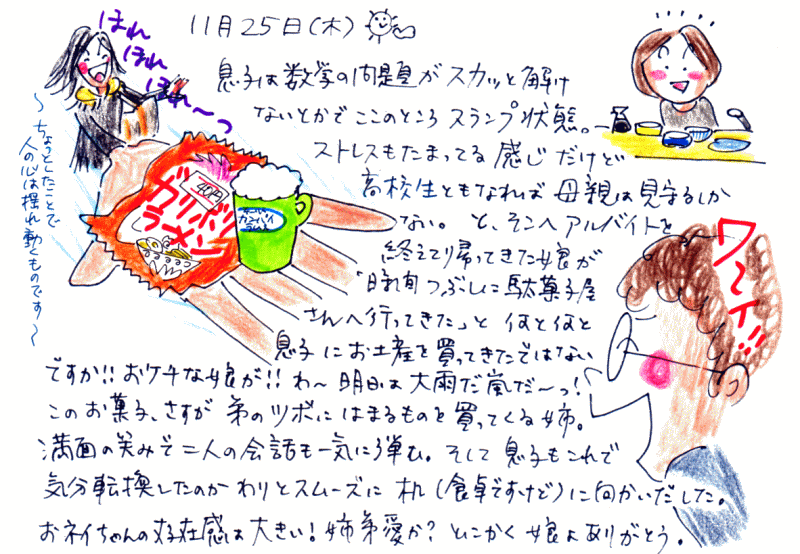 11月25日(木)
ほれ
ほれ
ほれ〜っ
息子は数学の問題がスカッと解け
ないとかでここのところスランプ状態。
ストレスもたまってる感じだけど
高校生ともなれば母親は見守るしか
ない。と、そこへアルバイトを
終えて帰ってきた娘が
「暇つぶしに駄菓子屋
さんへ行ってきた」と何と何と
息子にお土産を買ってきたではない
ですか!!おケチな娘が!!わ〜明日は大雨だ嵐だ〜っ!
このお菓子、さすが弟のツボにはまるものを買ってくる姉。
満面の笑みで二人の会話も一気に弾む。そして息子もこれで
気分転換したのかわりとスムーズに机(食卓ですけど)に向かいだした。
おネイちゃんの存在感は大きい!姉弟愛か?とにかく娘よありがとう。
〜ちょっとしたことで
人の心は揺れ動くものです〜
ガリボリ
ラーメン
ワーイ!!